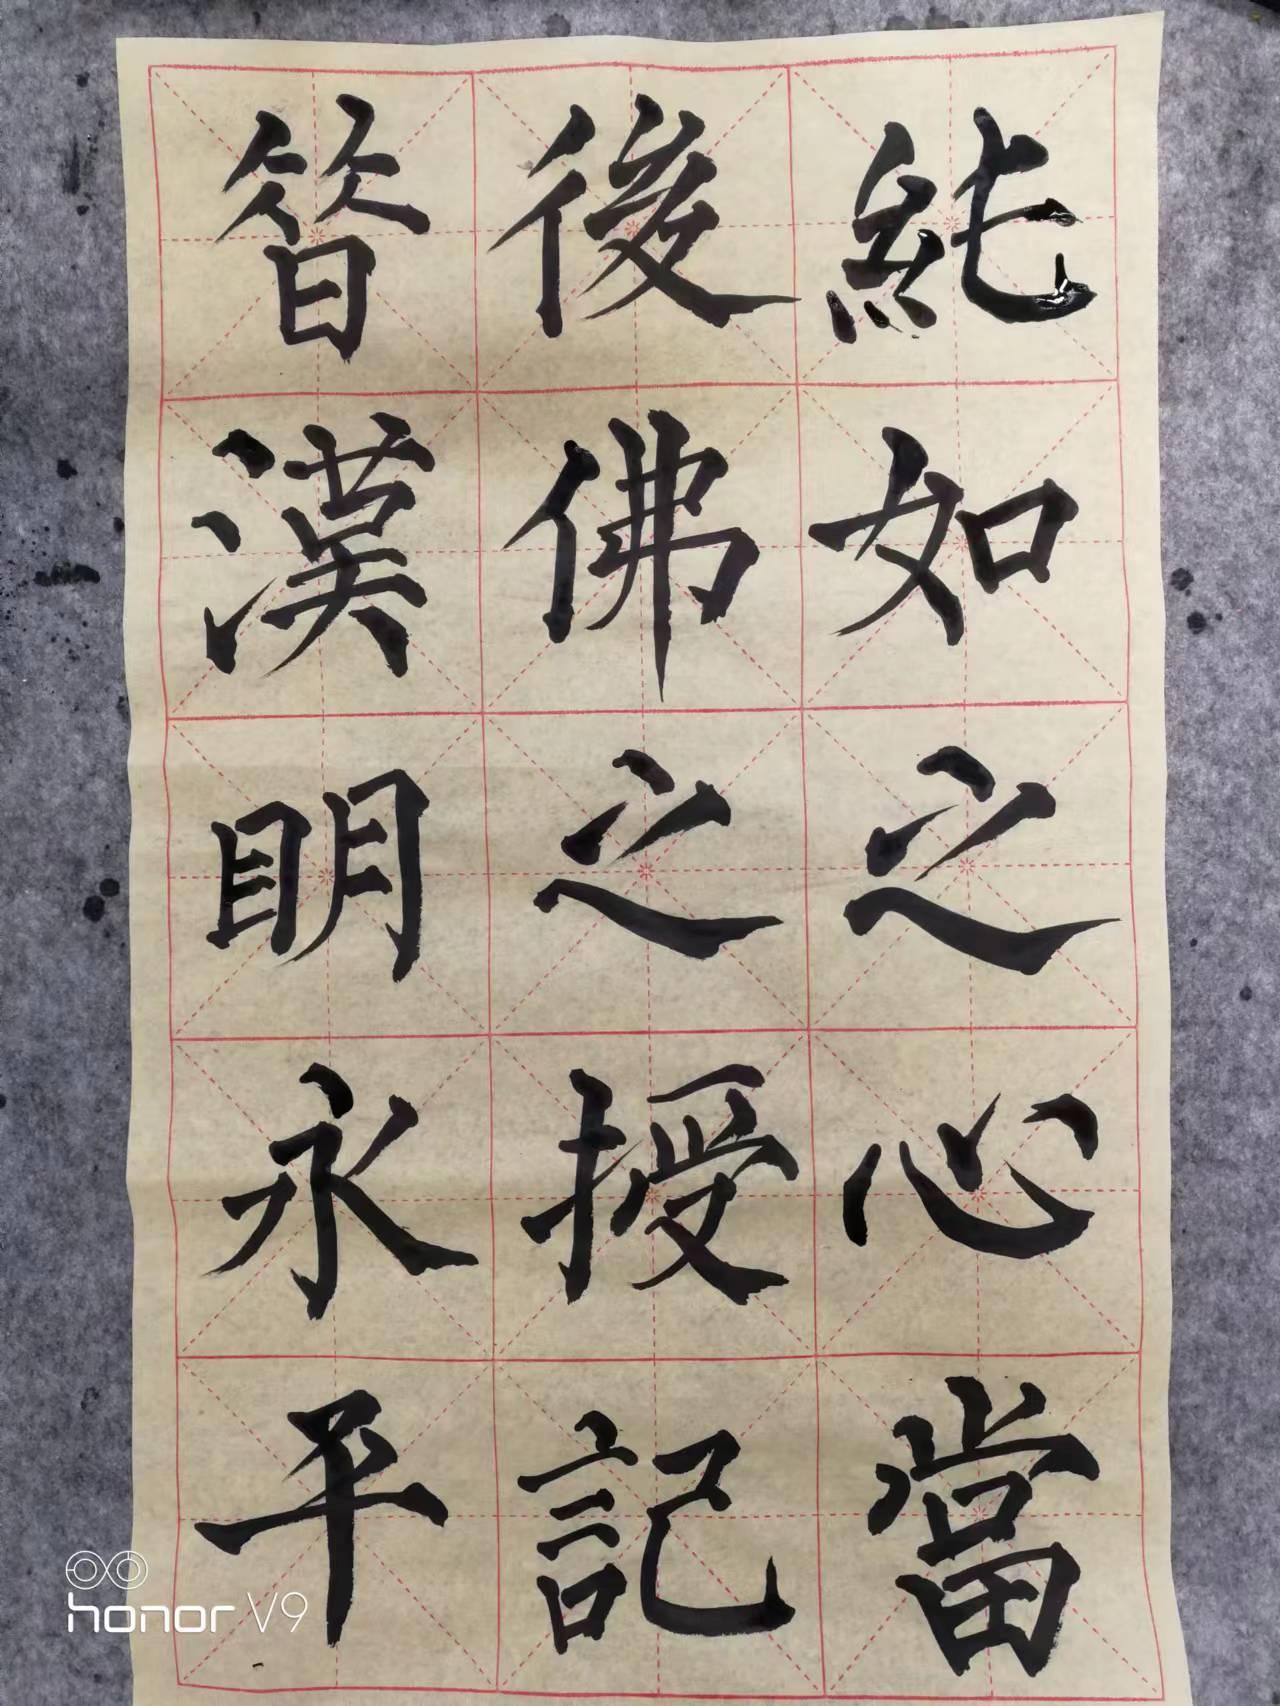 純如之心當
後佛之授記
昔漢明永平
honor V9